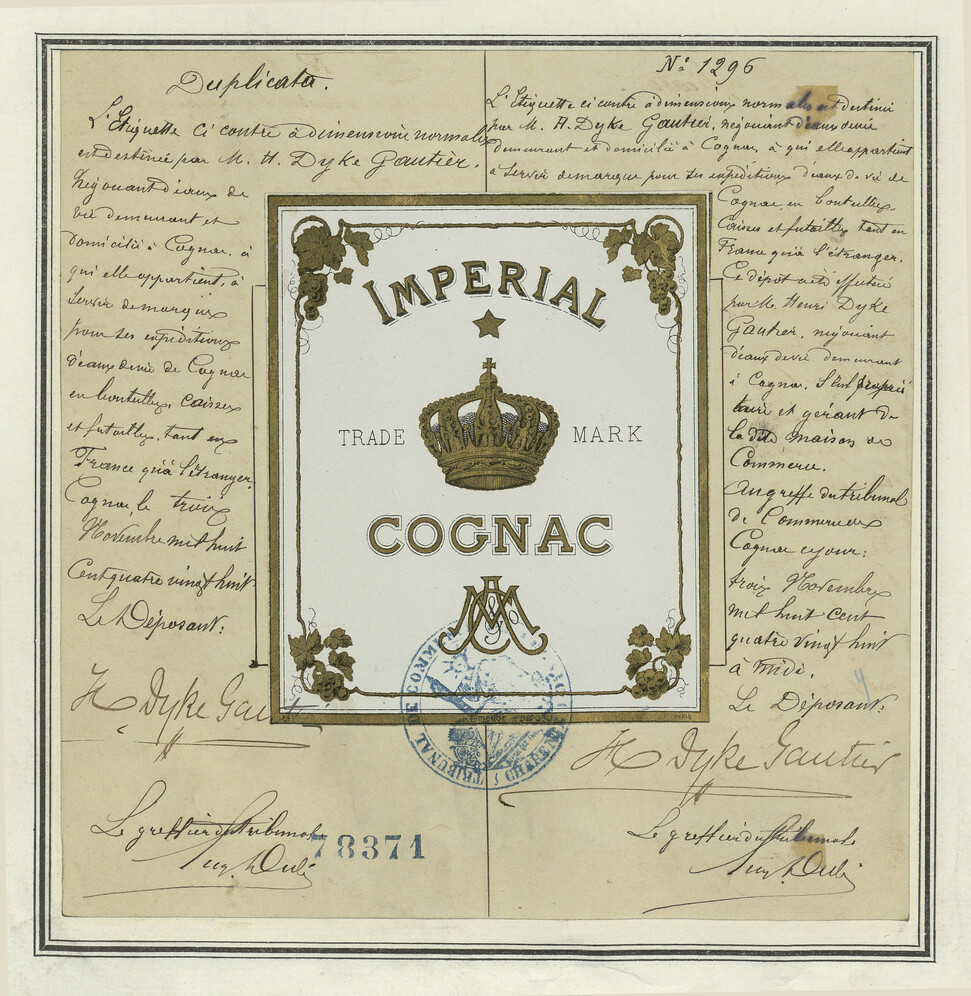 Duplicata.
L'Etiquette ci contre à dimensions normales
est destinée par M. H. Dyke Gautier,
négociant d'eaux de
vie demeurant et
domicilié à Cognac, à
qui elle appartient, à
servir de marque
pour ses expéditions
d'eaux de vie de Cognac
en bouteilles, caisses
et futailles, tant en
France qu'à l'étranger.
Cognac, le trois
Novembre mil huit
Cent quatre vingt huit
Le Déposant:
H Dyke Gautier
Le greffier du tribunal
78371
No 1296
L'Etiquette ci contre à dimensions normales est destinée
par M. H. Dyke Gautier, négociant d'eaux de vie
demeurant et domicilié à Cognac, à qui elle appartient
à servir de marque pour ses expéditions d'eaux de vie de
Cognac, en bouteilles,
caisses et futailles tant en
France qu'à l'étranger.
Ce dépôt a été effectué
par M. Henri Dyke
Gautier, négociant
d'eaux de vie demeurant
à Cognac, seul proprié
taire et gérant de
la dite maison de
Commerce.
Au greffe du tribunal
de Commerce de
Cognac ce jour:
trois Novembre
mil huit cent
quatre vingt huit
à midi.
Le Déposant:
H Dyke Gautier
Le greffier du tribunal
IMPERIAL
TRADE MARK
COGNAC
TRIBUNAL DE COMMERCE
PARIS